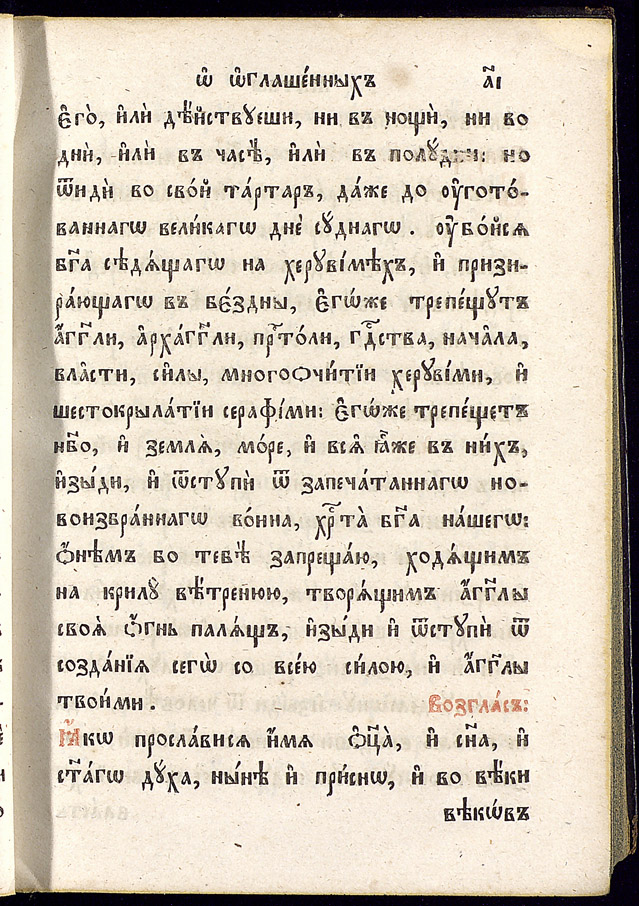 Ѿ ѡ҆глаше́нныхъ а҃і
є҆го̀, и҆лѝ дѣ́йствꙋеши, ни въ нощѝ, ни во
днѝ, и҆лѝ въ часѣ̀, и҆лѝ въ полꙋ́дни: но
ѿидѝ во сво́й та́ртаръ, да́же до ᲂу҆гото́-
ваннагѡ вели́кагѡ днѐ сꙋ́днагѡ. ᲂу҆бо́йсѧ
бг҃а сѣдѧ́щагѡ на херꙋві́мѣхъ, и҆ призи-
ра́ющагѡ въ бе́здны, є҆гѡ́же трепе́щꙋтъ
а҆́гг҃ли, а҆рха́гг҃ли, прⷭ҇то́ли, гдⷭ҇ства, нача̑ла,
вла̑сти, си̑лы, многоѻчи́тїи херꙋві́ми, и҆
шестокрыла́тїи серафі́ми: є҆гѡ́же трепе́щетъ
нб҃о, и҆ землѧ̀, мо́ре, и҆ всѧ̑ ꙗ҆̀же въ ни́хъ,
и҆зы́ди, и҆ ѿстꙋпѝ ѿ запеча́таннагѡ но-
воизбра́ннагѡ во́инна, хрⷭ҇та̀ бг҃а на́шегѡ:
ѻ҆́нѣмъ бо тебѣ̀ запреща́ю, ходѧ́щимъ
на крилꙋ̀ вѣ́тренюю, творѧ́щимъ а҆́гг҃лы
своѧ̑ ѻ҆́гнь палѧ́щъ, и҆зы́ди и҆ ѿстꙋпѝ ѿ
созда́нїѧ сегѡ̀ со все́ю си́лою, и҆ а҆́гг҃лы
твои́ми. Возгла́съ:
Ꙗ҆́кѡ просла́висѧ и҆́мѧ ѻ҆ц҃а̀, и҆ сн҃а, и҆
ст҃а́гѡ дꙋ́ха, ны́нѣ и҆ при́снѡ, и҆ во вѣ́ки
вѣкѡ́въ